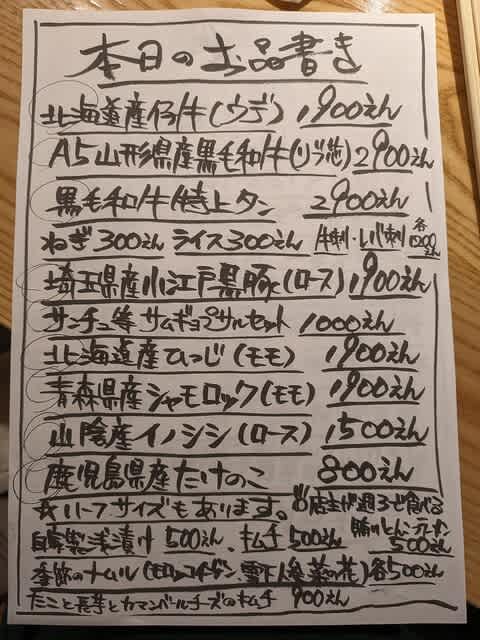 本日のお品書き
北海道産仔牛(ウデ) 1900えん
A5山形県産黒毛和牛(リブ芯) 2900えん
黒毛和牛特上タン 2900えん
ねぎ300えん ライス300えん 牛刺・レバ刺 各1000えん
埼玉県産小江戸黒豚(ロース) 1900えん
サンチュ等 サムギョプサルセット 1000えん
北海道産ひつじ(モモ) 1900えん
青森県産シャモロック(モモ) 1900えん
山陰産イノシシ(ロース) 1500えん
鹿児島県産たけのこ 800えん
☆ハーフサイズもあります。 店主が週3で食べる
自家製浅漬け 500えん、キムチ 500えん 500えん
季節のナムル 雪下人参 菜の花) 各500えん
たこと長芋とカマンベールチーズのキムチ 900えん